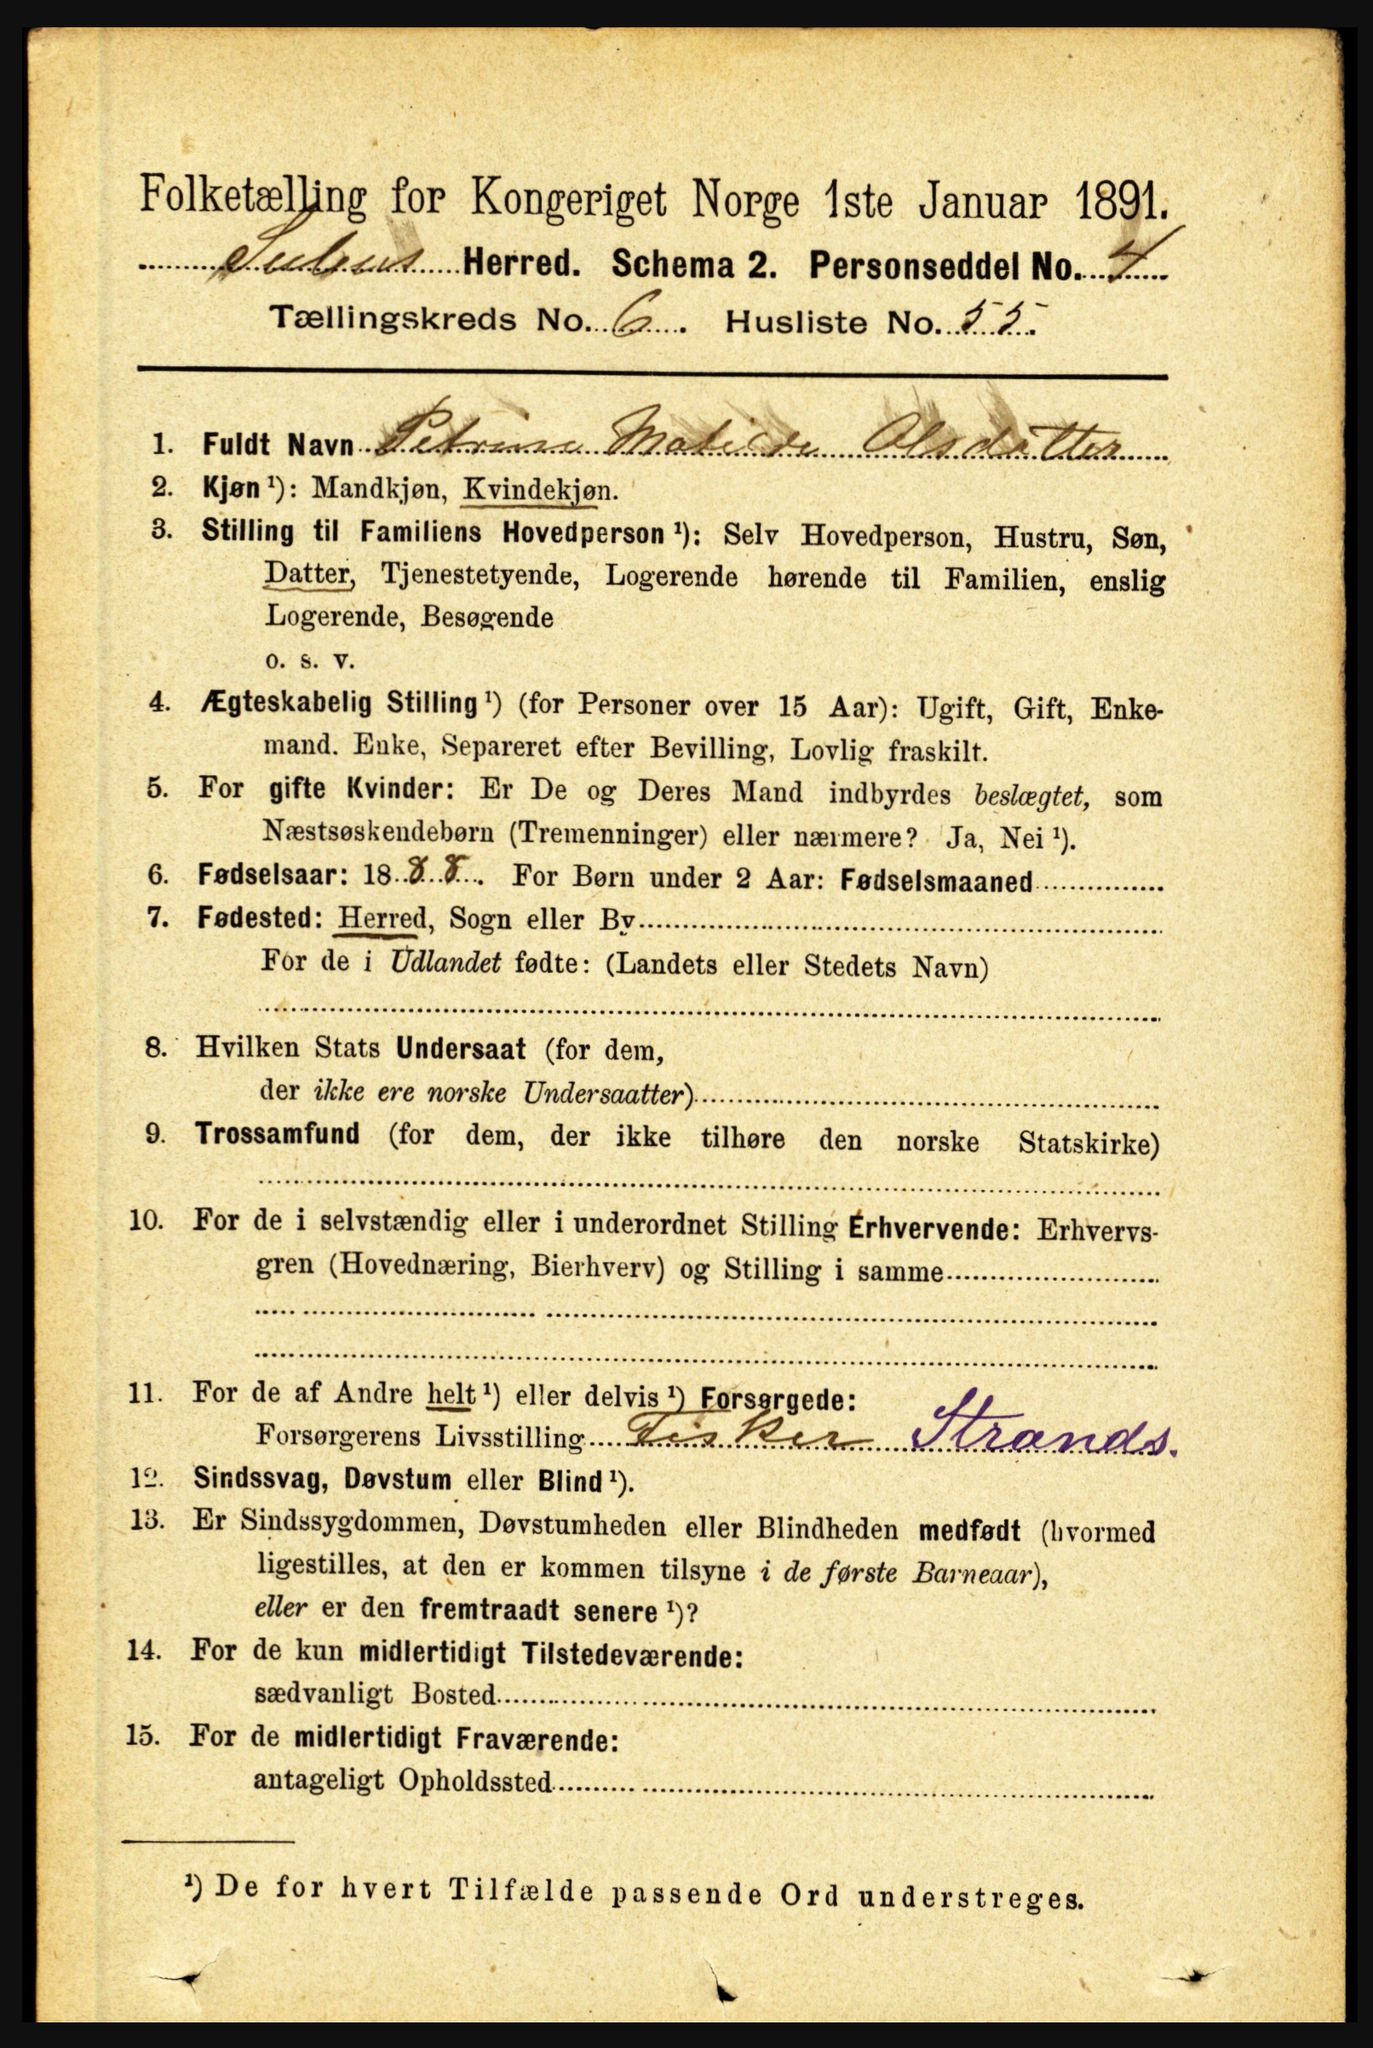 Folketælling for Kongeriget Norge 1ste Januar 1891.
Herred. Schema 2. Personseddel No. 4
Tællingskreds No. 6. Husliste No. 55.
1. Fuldt Navn Petrine Matilde Olsdatter
2. Kjøn ¹): Mandkjøn, Kvindekjøn.
3. Stilling til Familiens Hovedperson ¹): Selv Hovedperson, Hustru, Søn,
Datter, Tjenestetyende, Logerende hørende til Familien, enslig
Logerende, Besøgende
o. s. v.
4. Ægteskabelig Stilling ¹) (for Personer over 15 Aar): Ugift, Gift, Enke-
mand. Enke, Separeret efter Bevilling, Lovlig fraskilt.
5. For gifte Kvinder: Er De og Deres Mand indbyrdes beslægtet, som
Næstsøskendebørn (Tremenninger) eller nærmere? Ja, Nei ¹).
6. Fødselsaar: 1888. For Børn under 2 Aar: Fødselsmaaned
7. Fødested: Herred, Sogn eller By
For de i Udlandet fødte: (Landets eller Stedets Navn)
8. Hvilken Stats Undersaat (for dem,
der ikke ere norske Undersaatter)
9. Trossamfund (for dem, der ikke tilhøre den norske Statskirke)
10. For de i selvstændig eller i underordnet Stilling Erhvervende: Erhvervs-
gren (Hovednæring, Bierhverv) og Stilling i samme
11. For de af Andre helt ¹) eller delvis ¹) Forsørgede:
Forsørgerens Livsstilling Fisker Strands.
12. Sindssvag, Døvstum eller Blind ¹).
13. Er Sindssygdommen, Døvstumheden eller Blindheden medfødt (hvormed
ligestilles, at den er kommen tilsyne i de første Barneaar),
eller er den fremtraadt senere ¹)?
14. For de kun midlertidigt Tilstedeværende:
sædvanligt Bosted
15. For de midlertidigt Fraværende:
antageligt Opholdssted
¹) De for hvert Tilfælde passende Ord understreges.